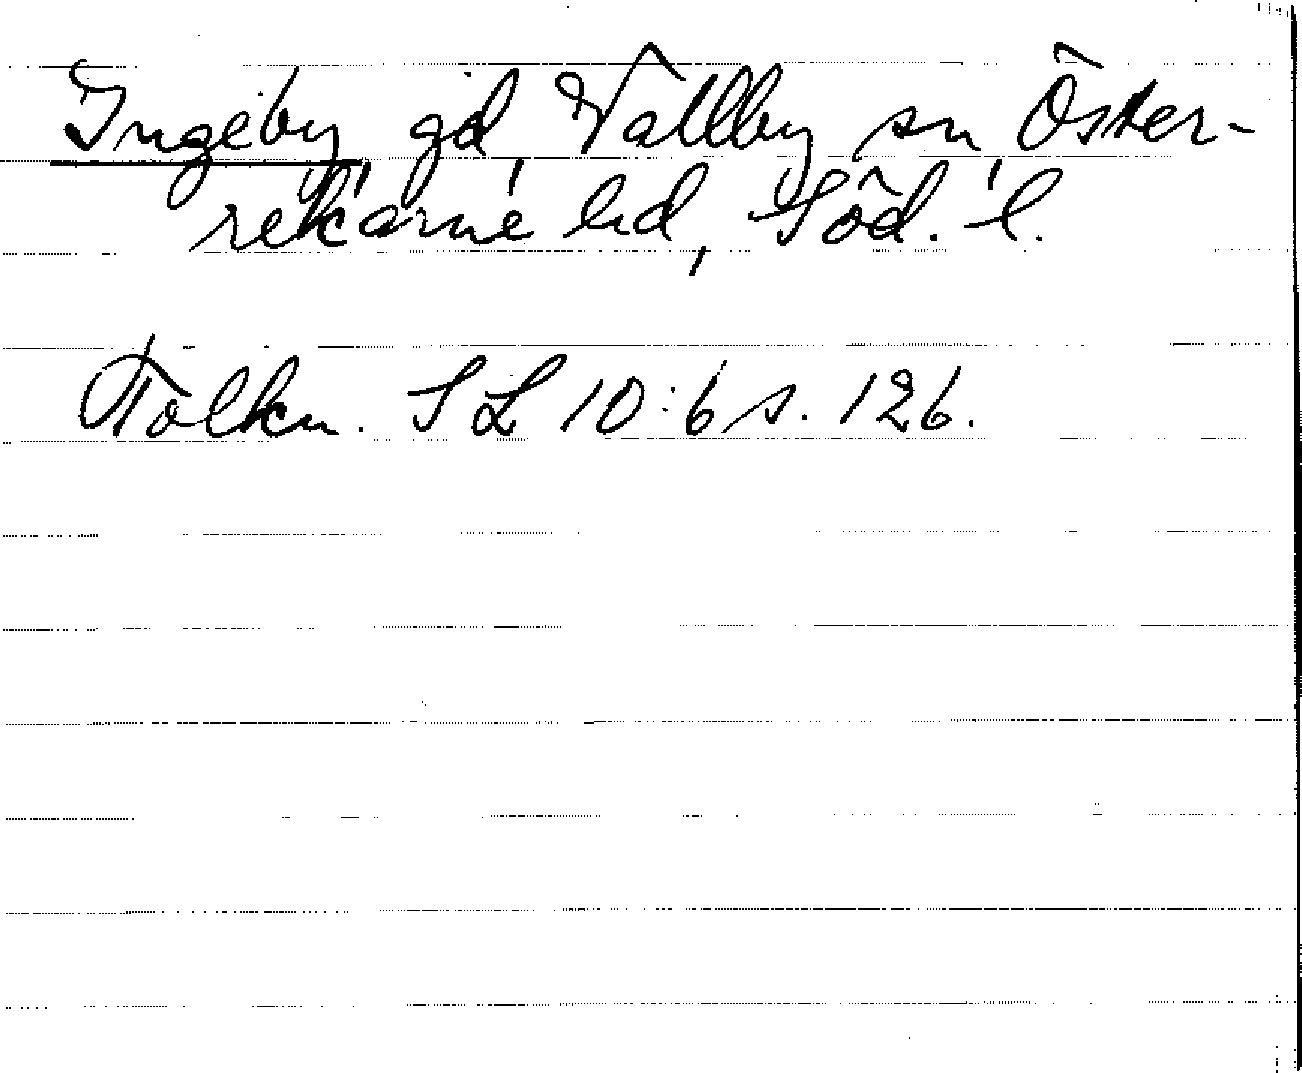 Ingeby, gd, Vallby sn, Öster-
rekarne hd, Söd. l.
Tolkn. SL 10:6 s. 126.